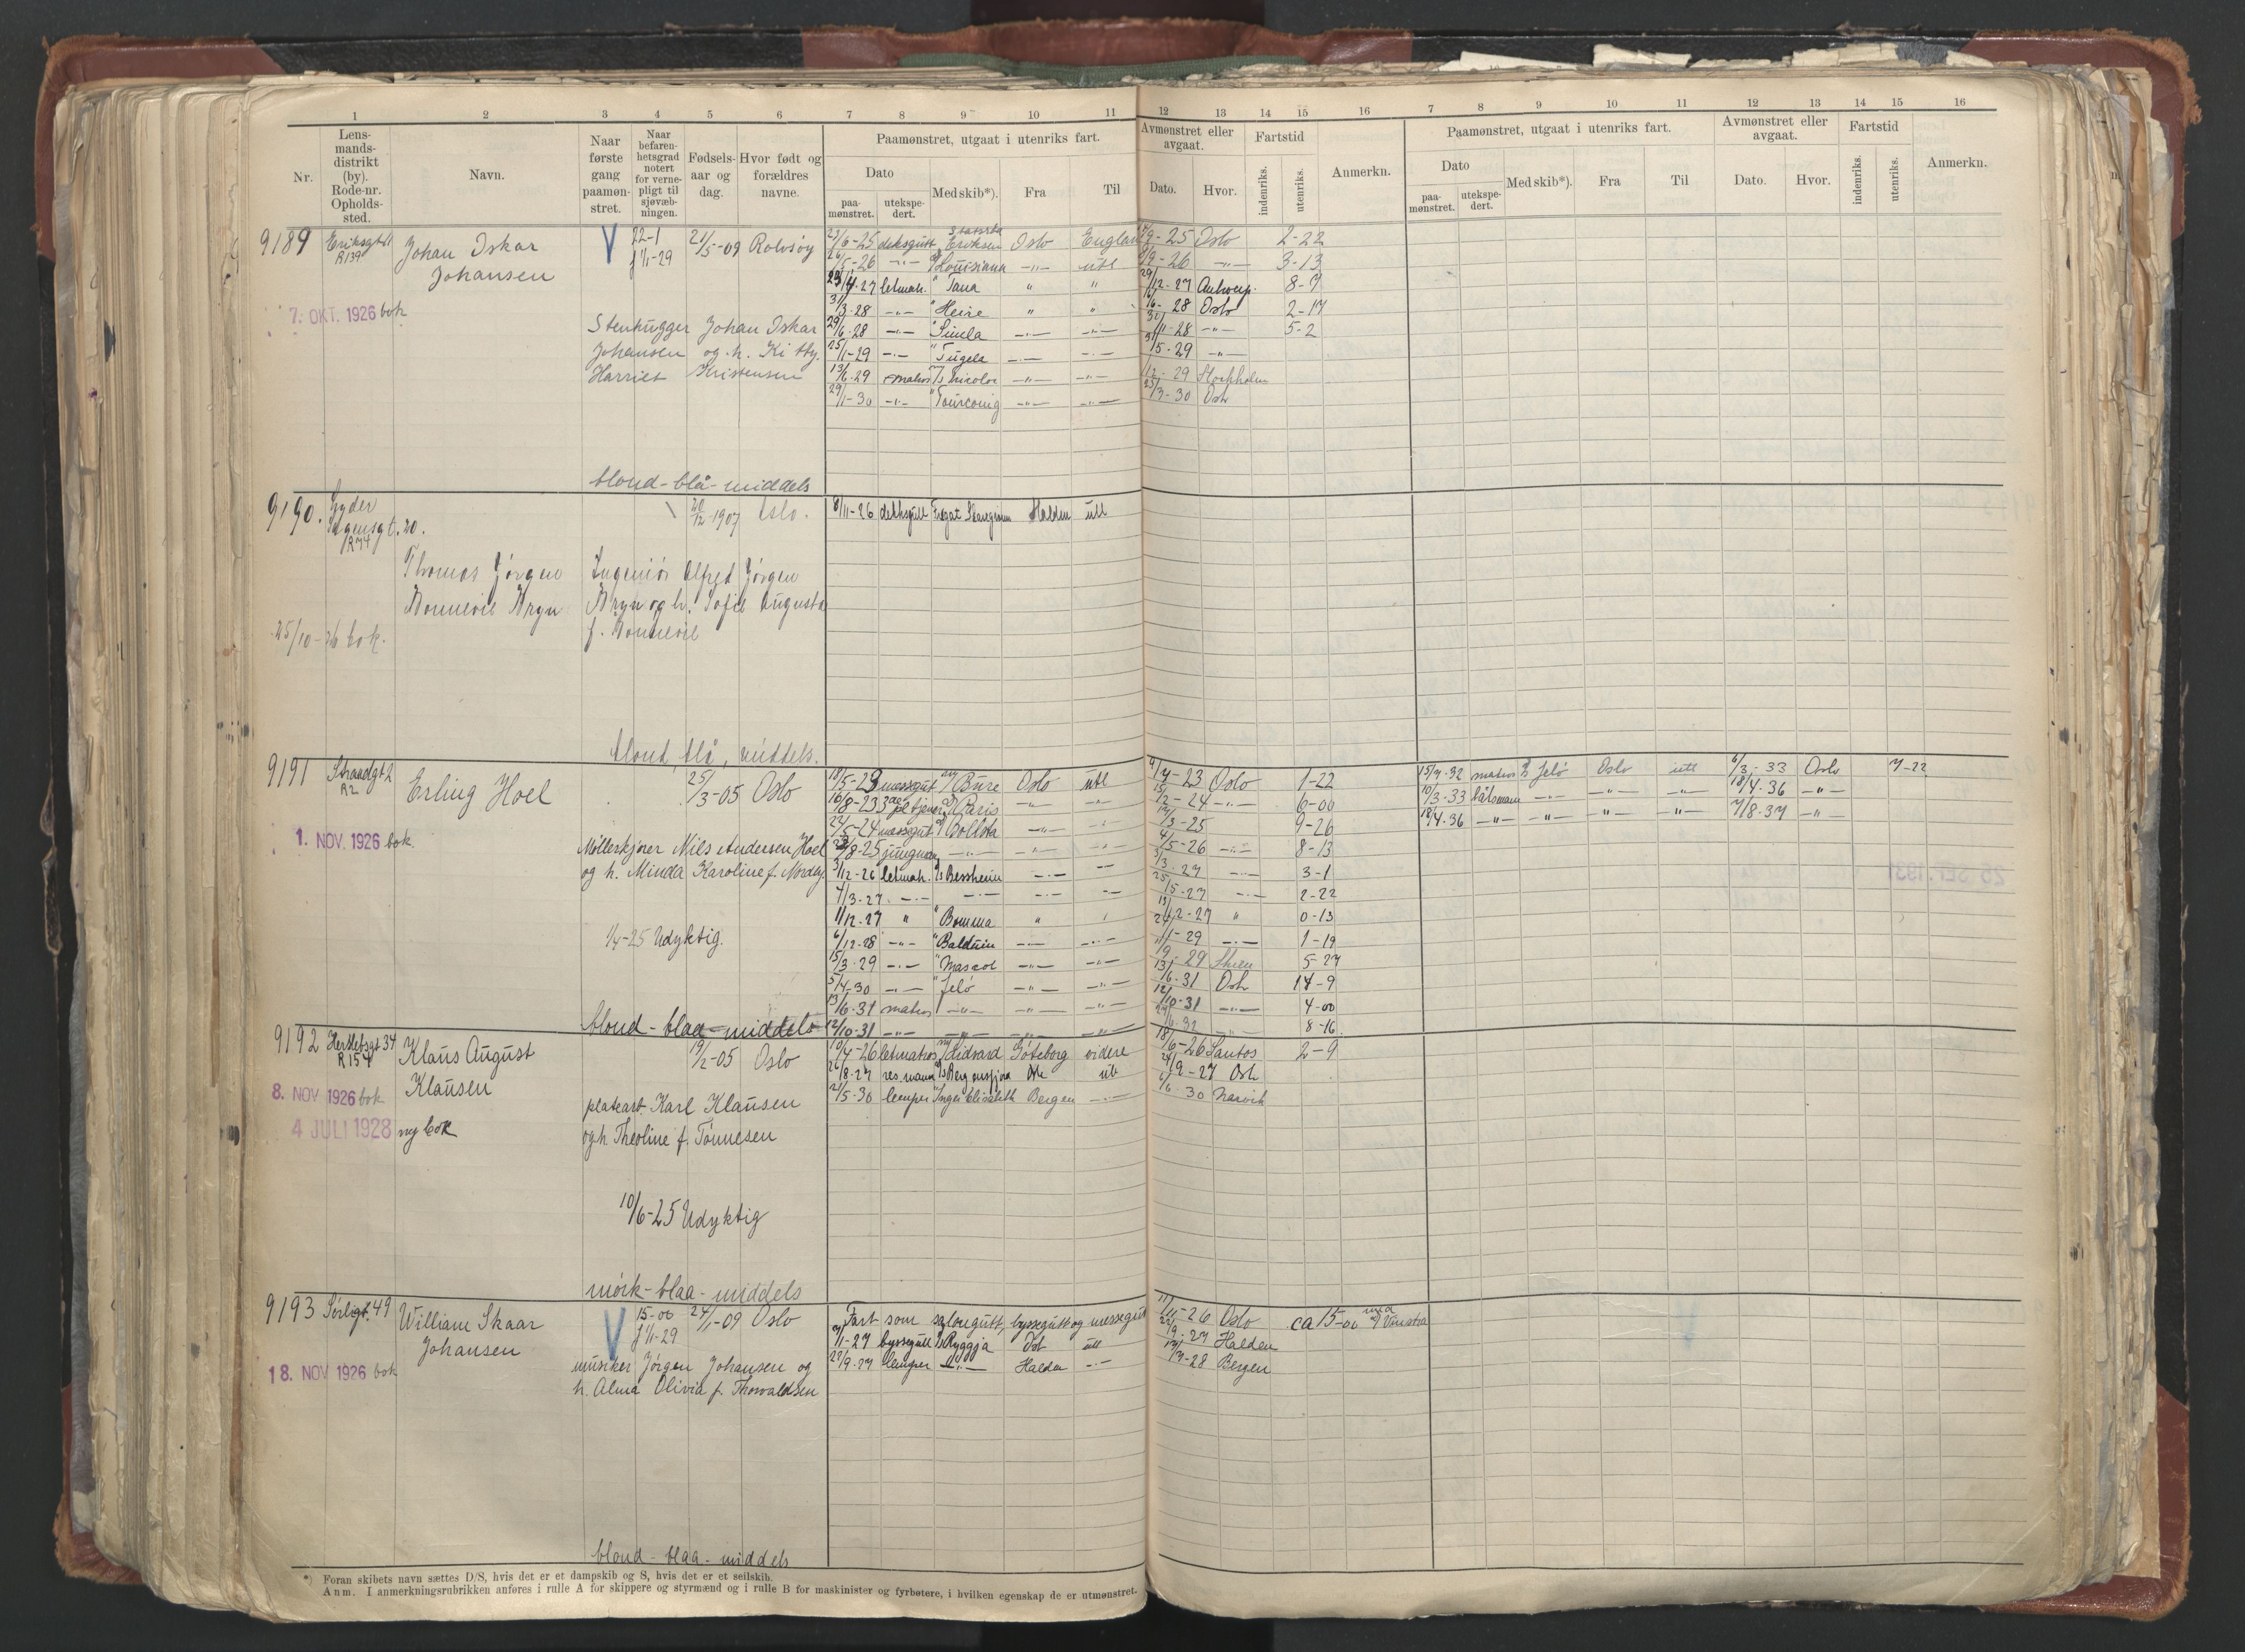 1 2 3 4 5 6 7 8 9 10 11 12 13 14 15 16 7 8 9 10 11 12 13 14 15 16
Nr.
Lens-
mands-
distrikt
(by).
Rode-nr.
Opholds-
sted.
Navn.
Naar
første
gang
paamøn-
stret.
Naar
befaren-
hetsgrad
notert
for verne-
pligt til
sjøvæb-
ningen.
Fødsels-
aar og
dag.
Hvor født og
forældres
navne.
Paamønstret, utgaat i utenriks fart.
Dato
paa-
mønstret.
utekspe-
dert.
Med skib*).
Fra
Til
Avmønstret eller
avgaat.
Dato.
Hvor.
Fartstid
indenriks.
utenriks.
Anmerkn.
Paamønstret, utgaat i utenriks fart.
Dato
paa-
mønstret.
utekspe-
dert.
Med skib*).
Fra
Til
Avmønstret eller
avgaat.
Dato.
Hvor.
Fartstid
indenriks.
utenriks.
Anmerkn.
9189 Johan Oskar
Johansen
R139
22-1
1/11-29
21/5-09 Rolvsøy
7. OKT. 1926 bok
Stenhugger Johan Oskar
Johansen og h. Kitty
Harriet Kristensen
23/6-25 dekksgutt Eriksen Oslo England 9-25 Oslo 2-22
5-26 -"- Louisiana -"- utl 9-26 -"- 3-13
23/4-27 letmatr. " Tana " " 29/12-27 Antwerp. 8-7
3-28 -"- " Heire " " 6-28 Oslo 2-17
29/6-28 -"- " Simla -"- -"- 11-28 -"- 5-2
25/1-29 -"- " Tugela -"- -"- 5-29 -"-
13/6-29 matros Nicolos -"- -"- 12-29 Stockholm
29/1-30 -"- " Tourcoing -"- -"- 25/3-30 Oslo
blond-blå-middels
9190. Gyder
gt. 20.
R74
20/12-1907 Oslo.
8/11-26 dekksgutt Halden utl
Thomas Jørgen
Bonnevie Bryn
Ingeniør Alfred Jørgen
Bryn og h. Sofie Augusta
f. Bonnevie
25/10-26 bok.
blond, blå, middels.
9191 Strandgt 2
R2
Erling Hoel
25/3-05 Oslo
1. NOV. 1926 bok.
Møllerkjører Nils Andersen Hoel
og h. Minda Karoline f. Nordby
1/4-25 Udyktig.
18/5-23 messegut Bure Oslo utl 7-23 Oslo 1-22
16/8-23 Paris -"- -"- 15/12-24 -"- 6-00
24/5-24 messegut Bollsta -"- -"- 3-25 9-26
8-25 jungmann -"- -"- -"- 4/5-26 -"- 8-13
3/12-26 letmatr. Bessheim -"- -"- 3/3-27 -"- 3-1
4/3-27 -"- -"- -"- 25/5-27 -"- 2-22
1/12-27 " " Bomma " " 12-27 " 0-13
6/12-28 -"- " Balduin -"- -"- 1-29 -"- 1-19
15/3-29 -"- " Mascot -"- -"- 9-29 Skien 5-27
5/4-30 -"- " Jelø -"- -"- 13/6-31 Oslo 14-9
13/6-31 matros -"- -"- 12/10-31 -"- 4-00
12/10-31 -"- -"- -"- -"- 6-32 -"- 8-16.
15/7-32 matros Jelø Oslo utl 6/3-33 Oslo 7-22
10/3-33 båtsmann -"- -"- -"- 18/4-36 -"-
18/4-36 -"- -"- -"- -"- 7/8-37 -"-
blond-blaa-middels
9192 Herslebsgt 34
R154
Klaus August
Klausen
19/2-05 Oslo
8. NOV 1926 bok
4 JULI 1928 ny bok
platearb. Karl Klausen
og h. Theoline f. Tønnesen
10/6-25 Udyktig
10/4-26 letmatros Hidvard Göteborg videre 18/6-26 Santos 2-9
26/8-27 res. mann Bergensfjord Oslo utl 24/9-27 Oslo
21/5-30 lemper " Inger Elisabeth Bergen -"- 6-30 Narvik
mørk-blaa-middels
9193 Sørligt. 49
William Skaar
Johansen
15-00
1/11-29
24/1-09 Oslo
18. NOV 1926 bok
musiker Jørgen Johansen og
h. Alma Olivia f. Thorvaldsen
Fart som salongutt, byssegutt og messegut 11-26 Oslo ca 15-00 med Vinstra
11-27 byssegutt Ryggja Oslo utl 22/9-27 Halden
22/9-27 lemper -"- Halden -"- 7-28 Bergen
blond-blaa-middels
*) Foran skibets navn sættes D/S, hvis det er et dampskib og S, hvis det er et seilskib.
Anm. I anmerkningsrubrikken anføres i rulle A for skippere og styrmænd og i rulle B for maskinister og fyrbøtere, i hvilken egenskap de er utmønstret.